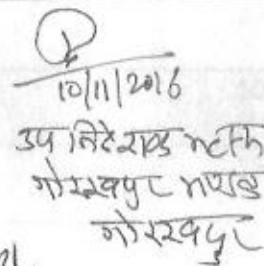 10/11/2016
उप निदेशक मत्स्य
गोरखपुर मण्डल
गोरखपुर